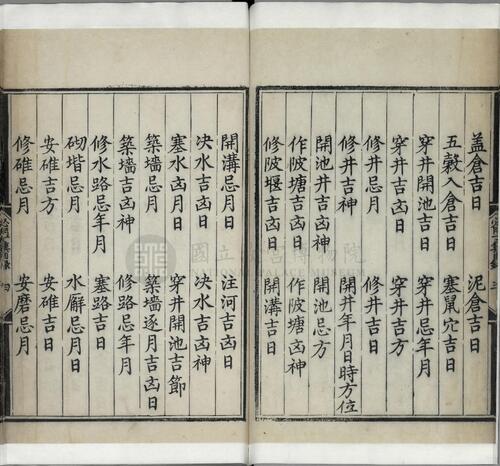 蓋倉吉日　泥倉吉日
五穀入倉吉日　塞鼠穴吉日
穿井開池吉日　穿井忌年月
穿井吉凶日　穿井吉方
修井忌月　修井吉日
修井吉凶神　開井年月日時方位
開池井吉凶日　開池忌方
作陂塘吉凶日　作陂塘凶神
修陂堰吉凶日　開溝吉日
開溝忌月日　注河吉凶日
决水吉凶日　决水吉凶神
塞水凶月日　穿井開池吉節
築墻忌月　築墻逐月吉凶日
築墻吉凶神　修路忌年月
修水路忌年月　塞路吉日
砌堦忌月　水廨忌月日
安碓吉方　安碓吉日
修碓忌月　安磨忌月
國立故宮博物院
NATIONAL PALACE MUSEUM